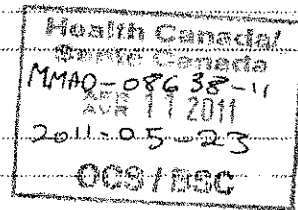 Health Canada/
Santé Canada
MMAO-08638-11
APR
AVR 11 2011
2011-05-23
OCS / BSC